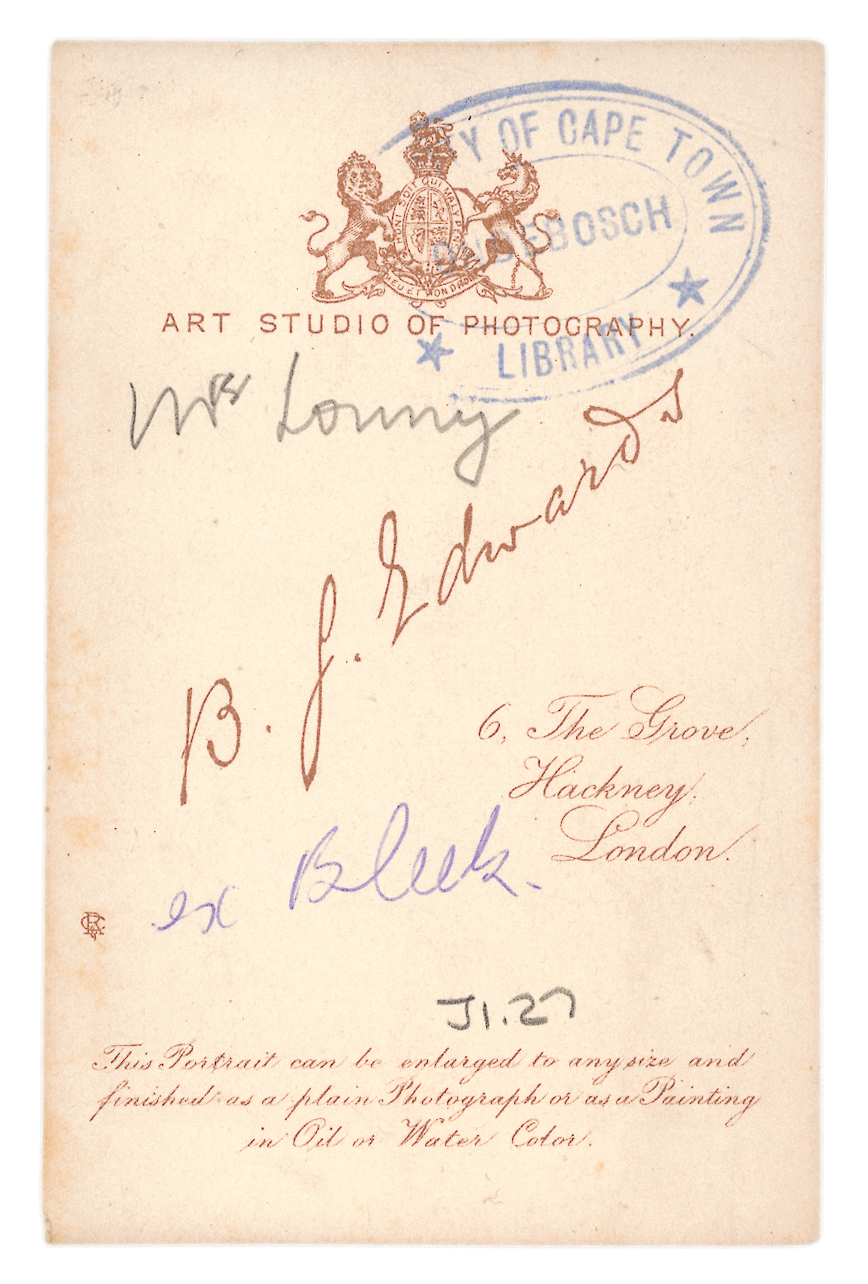 HONI SOIT QUI MAL Y PENSE
DIEU ET MON DROIT
TY OF CAPE TOWN
NDEBOSCH
LIBRARY
ART STUDIO OF PHOTOGRAPHY.
Mrs
B. J. Edwards
6, The Grove,
Hackney,
London.
ex Bleek.
J1.27
This Portrait can be enlarged to any size and
finished as a plain Photograph or as a Painting
in Oil or Water Color.